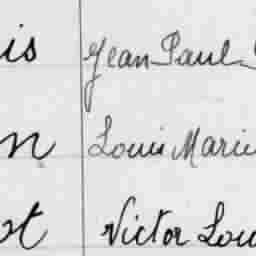 is Jean Paul
n Louis Marie
ot Victor Lou